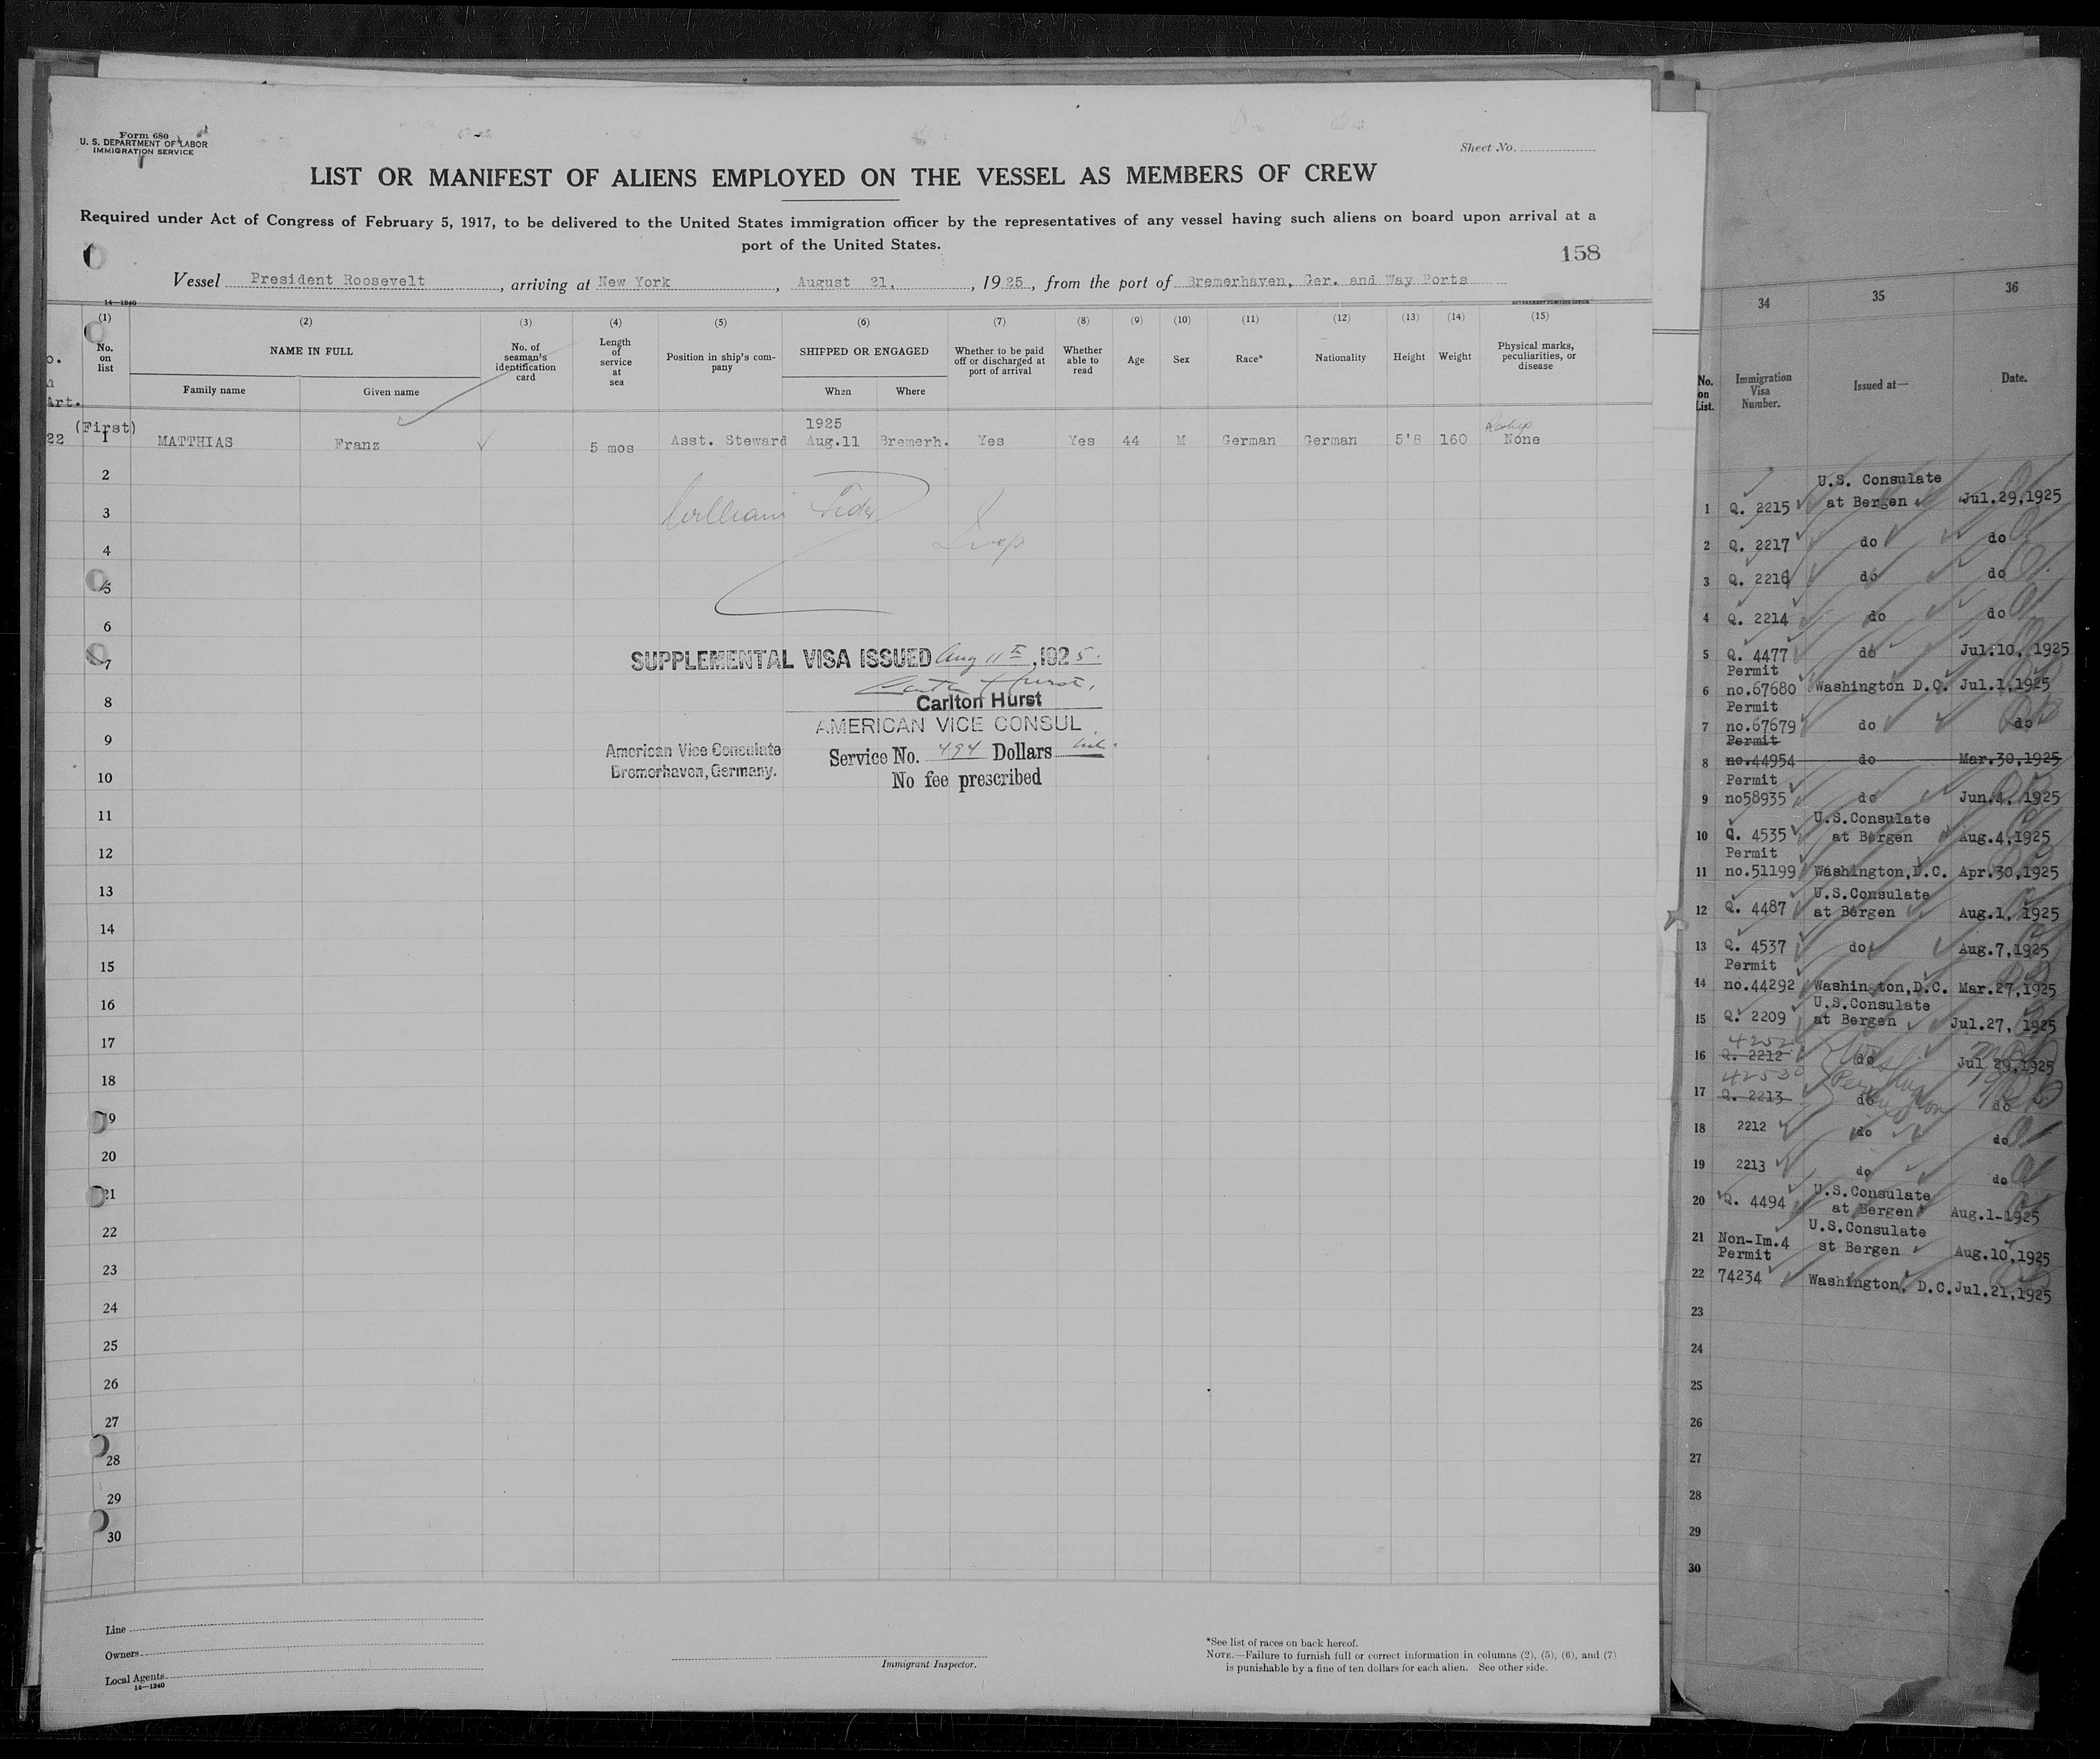 Form 680
U. S. DEPARTMENT OF LABOR
IMMIGRATION SERVICE
Sheet No.
LIST OR MANIFEST OF ALIENS EMPLOYED ON THE VESSEL AS MEMBERS OF CREW
Required under Act of Congress of February 5, 1917, to be delivered to the United States immigration officer by the representatives of any vessel having such aliens on board upon arrival at a
port of the United States.
158
Vessel President Roosevelt , arriving at New York , August 21, , 1925, from the port of Bremerhaven, Ger. and Way Ports
14—1240
(1) (2) (3) (4) (5) (6) (7) (8) (9) (10) (11) (12) (13) (14) (15)
No. on list
NAME IN FULL
Family name Given name
No. of seaman's identification card
Length of service at sea
Position in ship's company
SHIPPED OR ENGAGED
When Where
Whether to be paid off or discharged at port of arrival
Whether able to read
Age
Sex
Race*
Nationality
Height
Weight
Physical marks, peculiarities, or disease
Art.
(First) 1925
22 1 MATTHIAS Franz 5 mos Asst. Steward Aug.11 Bremerh. Yes Yes 44 M German German 5'8 160 None
2
3 William
4
5
6
7
8
9
10
11
12
13
14
15
16
17
18
19
20
21
22
23
24
25
26
27
28
29
30
SUPPLEMENTAL VISA ISSUED Aug 11th, 1925.
Carlton Hurst
AMERICAN VICE CONSUL
American Vice Consulate
Bremerhaven, Germany.
Service No. 494 Dollars
No fee prescribed
Line
Owners
Local Agents
14—1240
Immigrant Inspector.
*See list of races on back hereof.
NOTE.—Failure to furnish full or correct information in columns (2), (5), (6), and (7)
is punishable by a fine of ten dollars for each alien. See other side.
34 35 36
No. on List.
Immigration Visa Number.
Issued at—
Date.
U.S. Consulate
1 Q. 2215 at Bergen Jul.29,1925
2 Q. 2217 do do
3 Q. 2216 do do
4 Q. 2214 do do
5 Q. 4477 do Jul.10, 1925
Permit
6 no.67680 Washington D.C. Jul.1,1925
Permit
7 no.67679 do do
Permit
8 no.44954 do Mar.30,1925
Permit
9 no58935 do Jun.4, 1925
U.S.Consulate
10 Q. 4535 at Bergen Aug.4,1925
Permit
11 no.51199 Washington,D.C. Apr.30,1925
U.S.Consulate
12 Q. 4487 at Bergen Aug.1, 1925
13 Q. 4537 do Aug.7,1925
Permit
14 no.44292 Washington,D.C. Mar.27,1925
U.S.Consulate
15 Q. 2209 at Bergen Jul.27, 1925
16 Q. 2212 do Jul 29,1925
17 Q. 2213 do do
18 2212 do do
19 2213 do do
U.S.Consulate
20 Q. 4494 at Bergen Aug.1-1925
U.S.Consulate
21 Non-Im.4 st Bergen Aug.10,1925
Permit
22 74234 Washington, D.C. Jul.21,1925
23
24
25
26
27
28
29
30